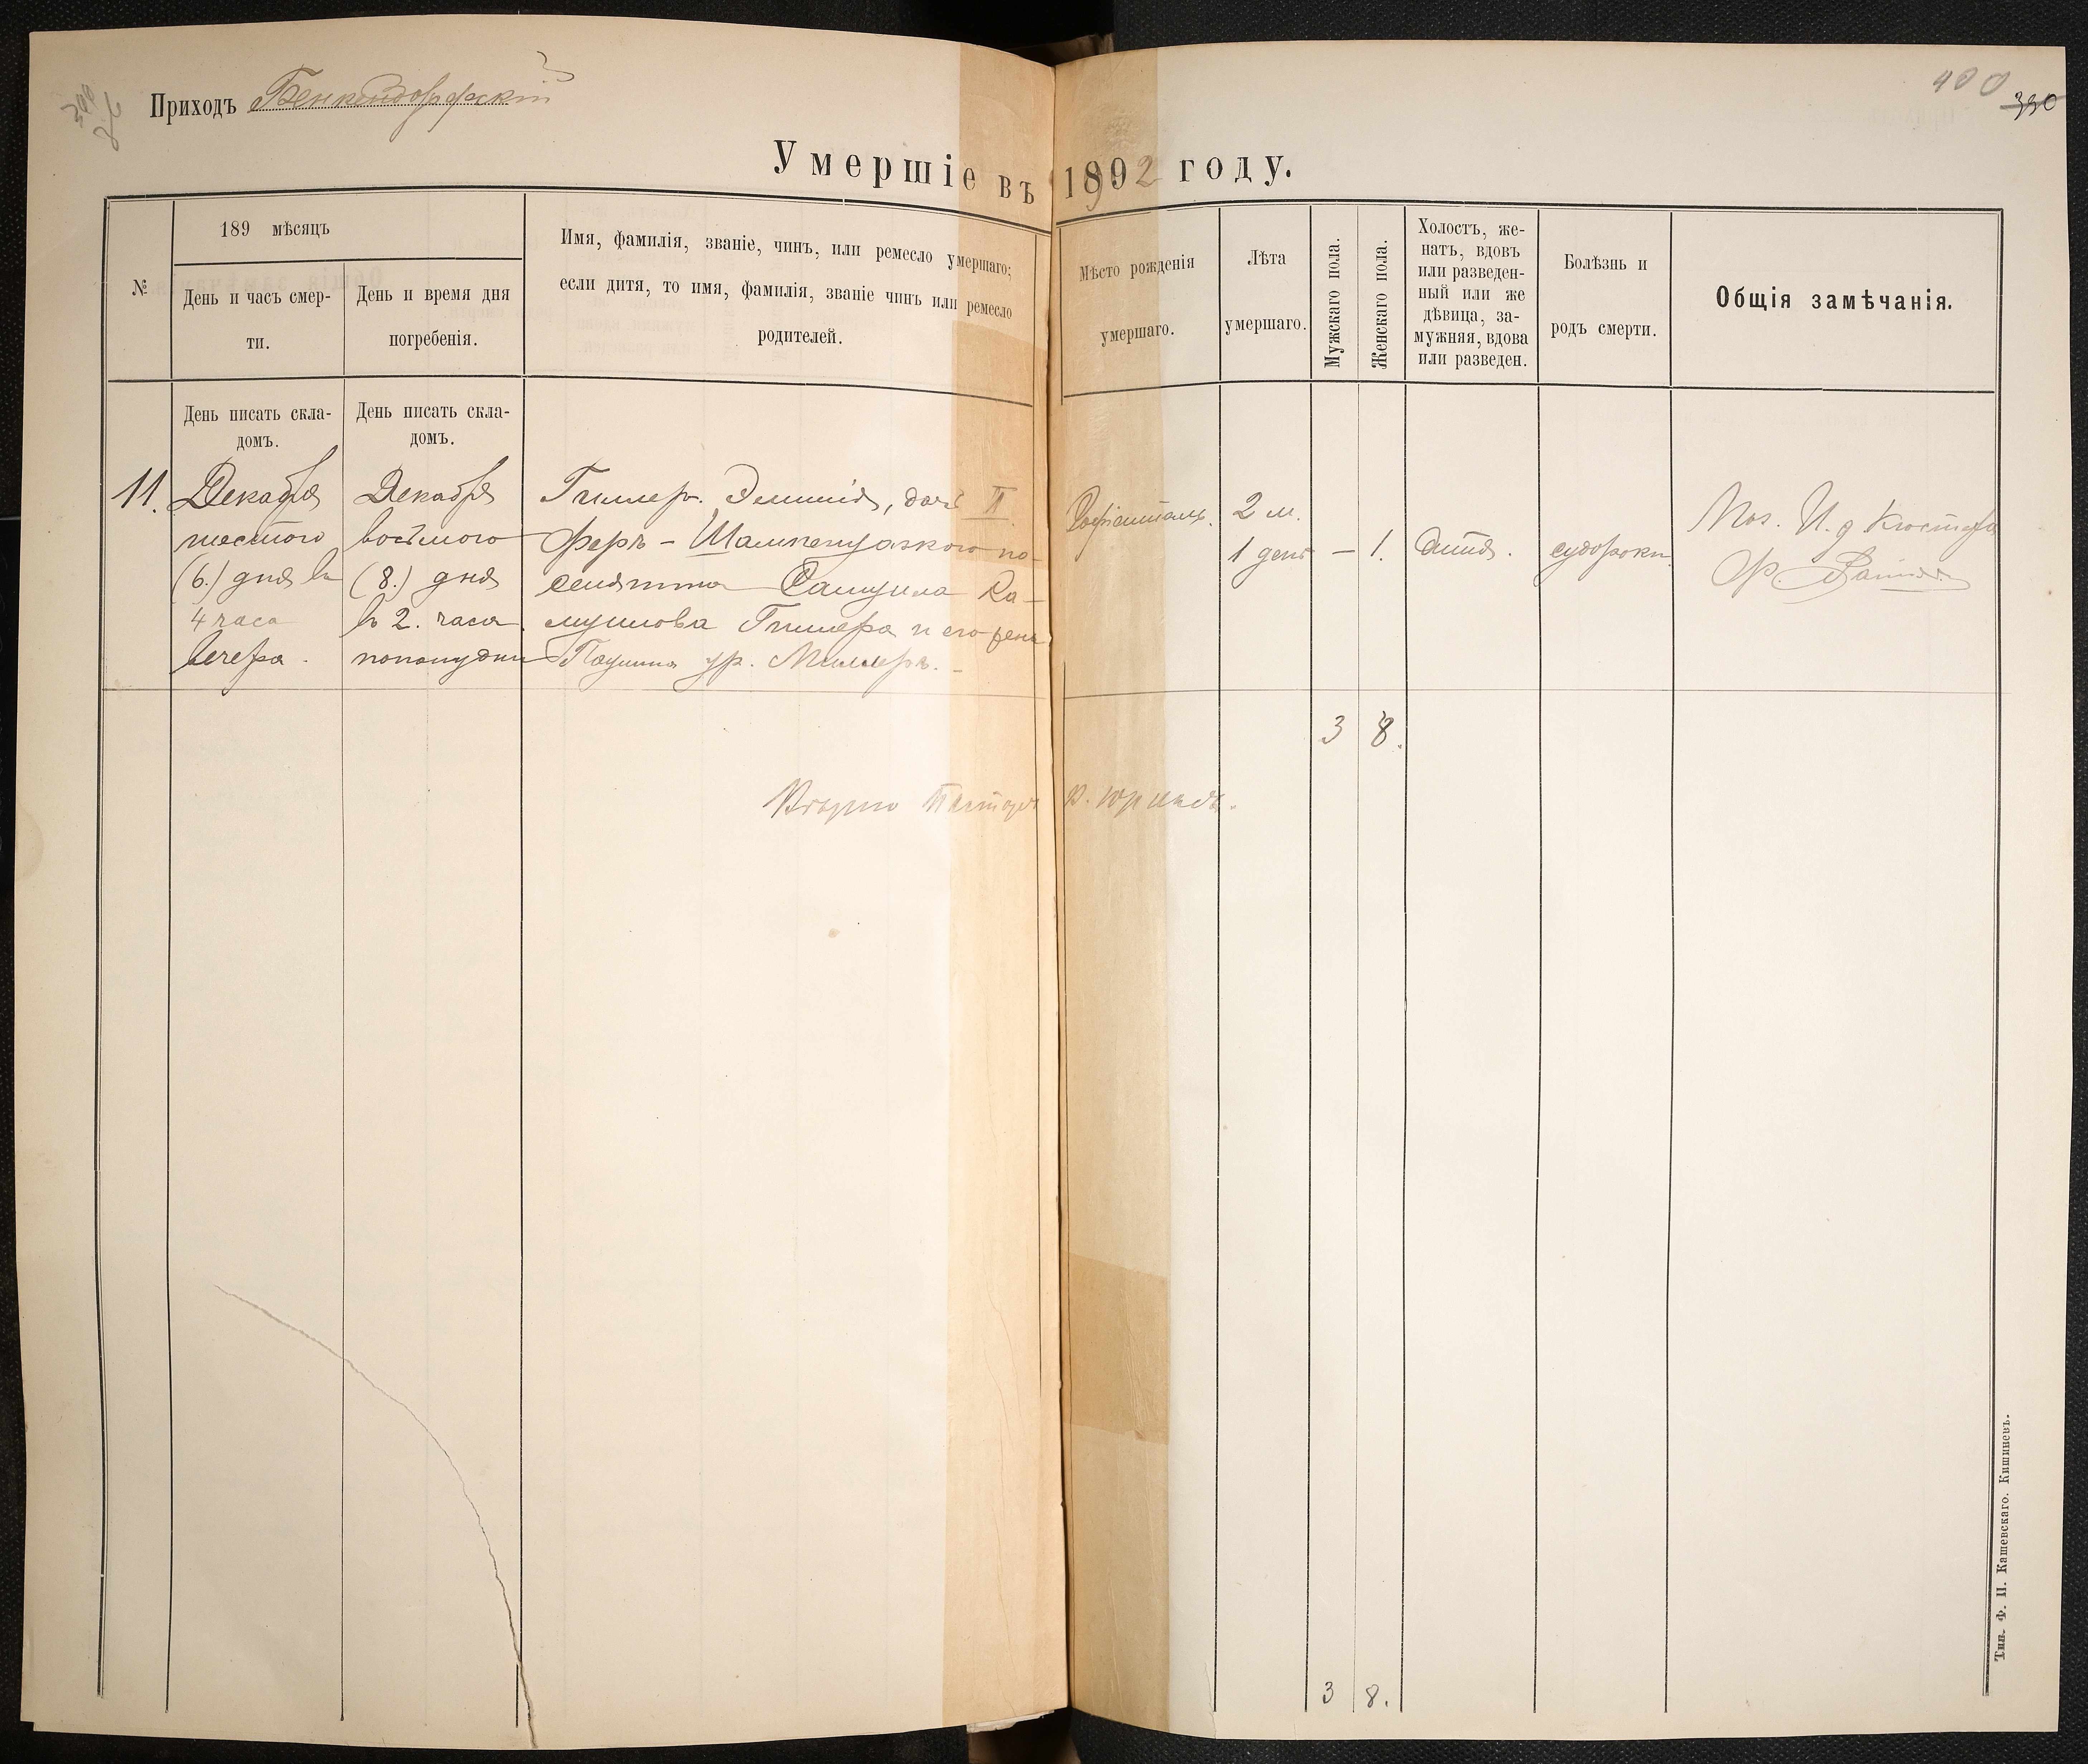 Приходъ Бенкендорфскій
400
330
Умершіе въ 1892 году.
№
189 мѣсяцъ
День и часъ смер-
ти.
День и время дня
погребенія.
Имя, фамилія, званіе, чинъ, или ремесло умершаго;
если дитя, то имя, фамилія, званіе чинъ или ремесло
родителей.
Мѣсто рожденія
умершаго.
Лѣта
умершаго.
Мужскаго пола.
Женскаго пола.
Холостъ, же-
натъ, вдовъ
или разведен-
ный или же
дѣвица, за-
мужняя, вдова
или разведен.
Болѣзнь и
родъ смерти.
Общія замѣчанія.
День писать скла-
домъ.
День писать скла-
домъ.
11.
Декабря
шестого
(6.) дня въ
4 часа
вечера.
Декабря
восьмого
(8.) дня
въ 2. часа
пополудни
Гиллеръ. Эмилія, дочь II
Феръ-Шампенуазкого по-
селянина Самуила Са-
муилова Гиллера и его жены
Паулины ур. Миллеръ. -
2 м.
1 день
-
1.
дитя.
судороки
И. д. Кюстера
Ф.
3
8.
Вѣрно Пасторъ
3
8.
Тип. Ф. П. Кашевскаго. Кишиневъ.